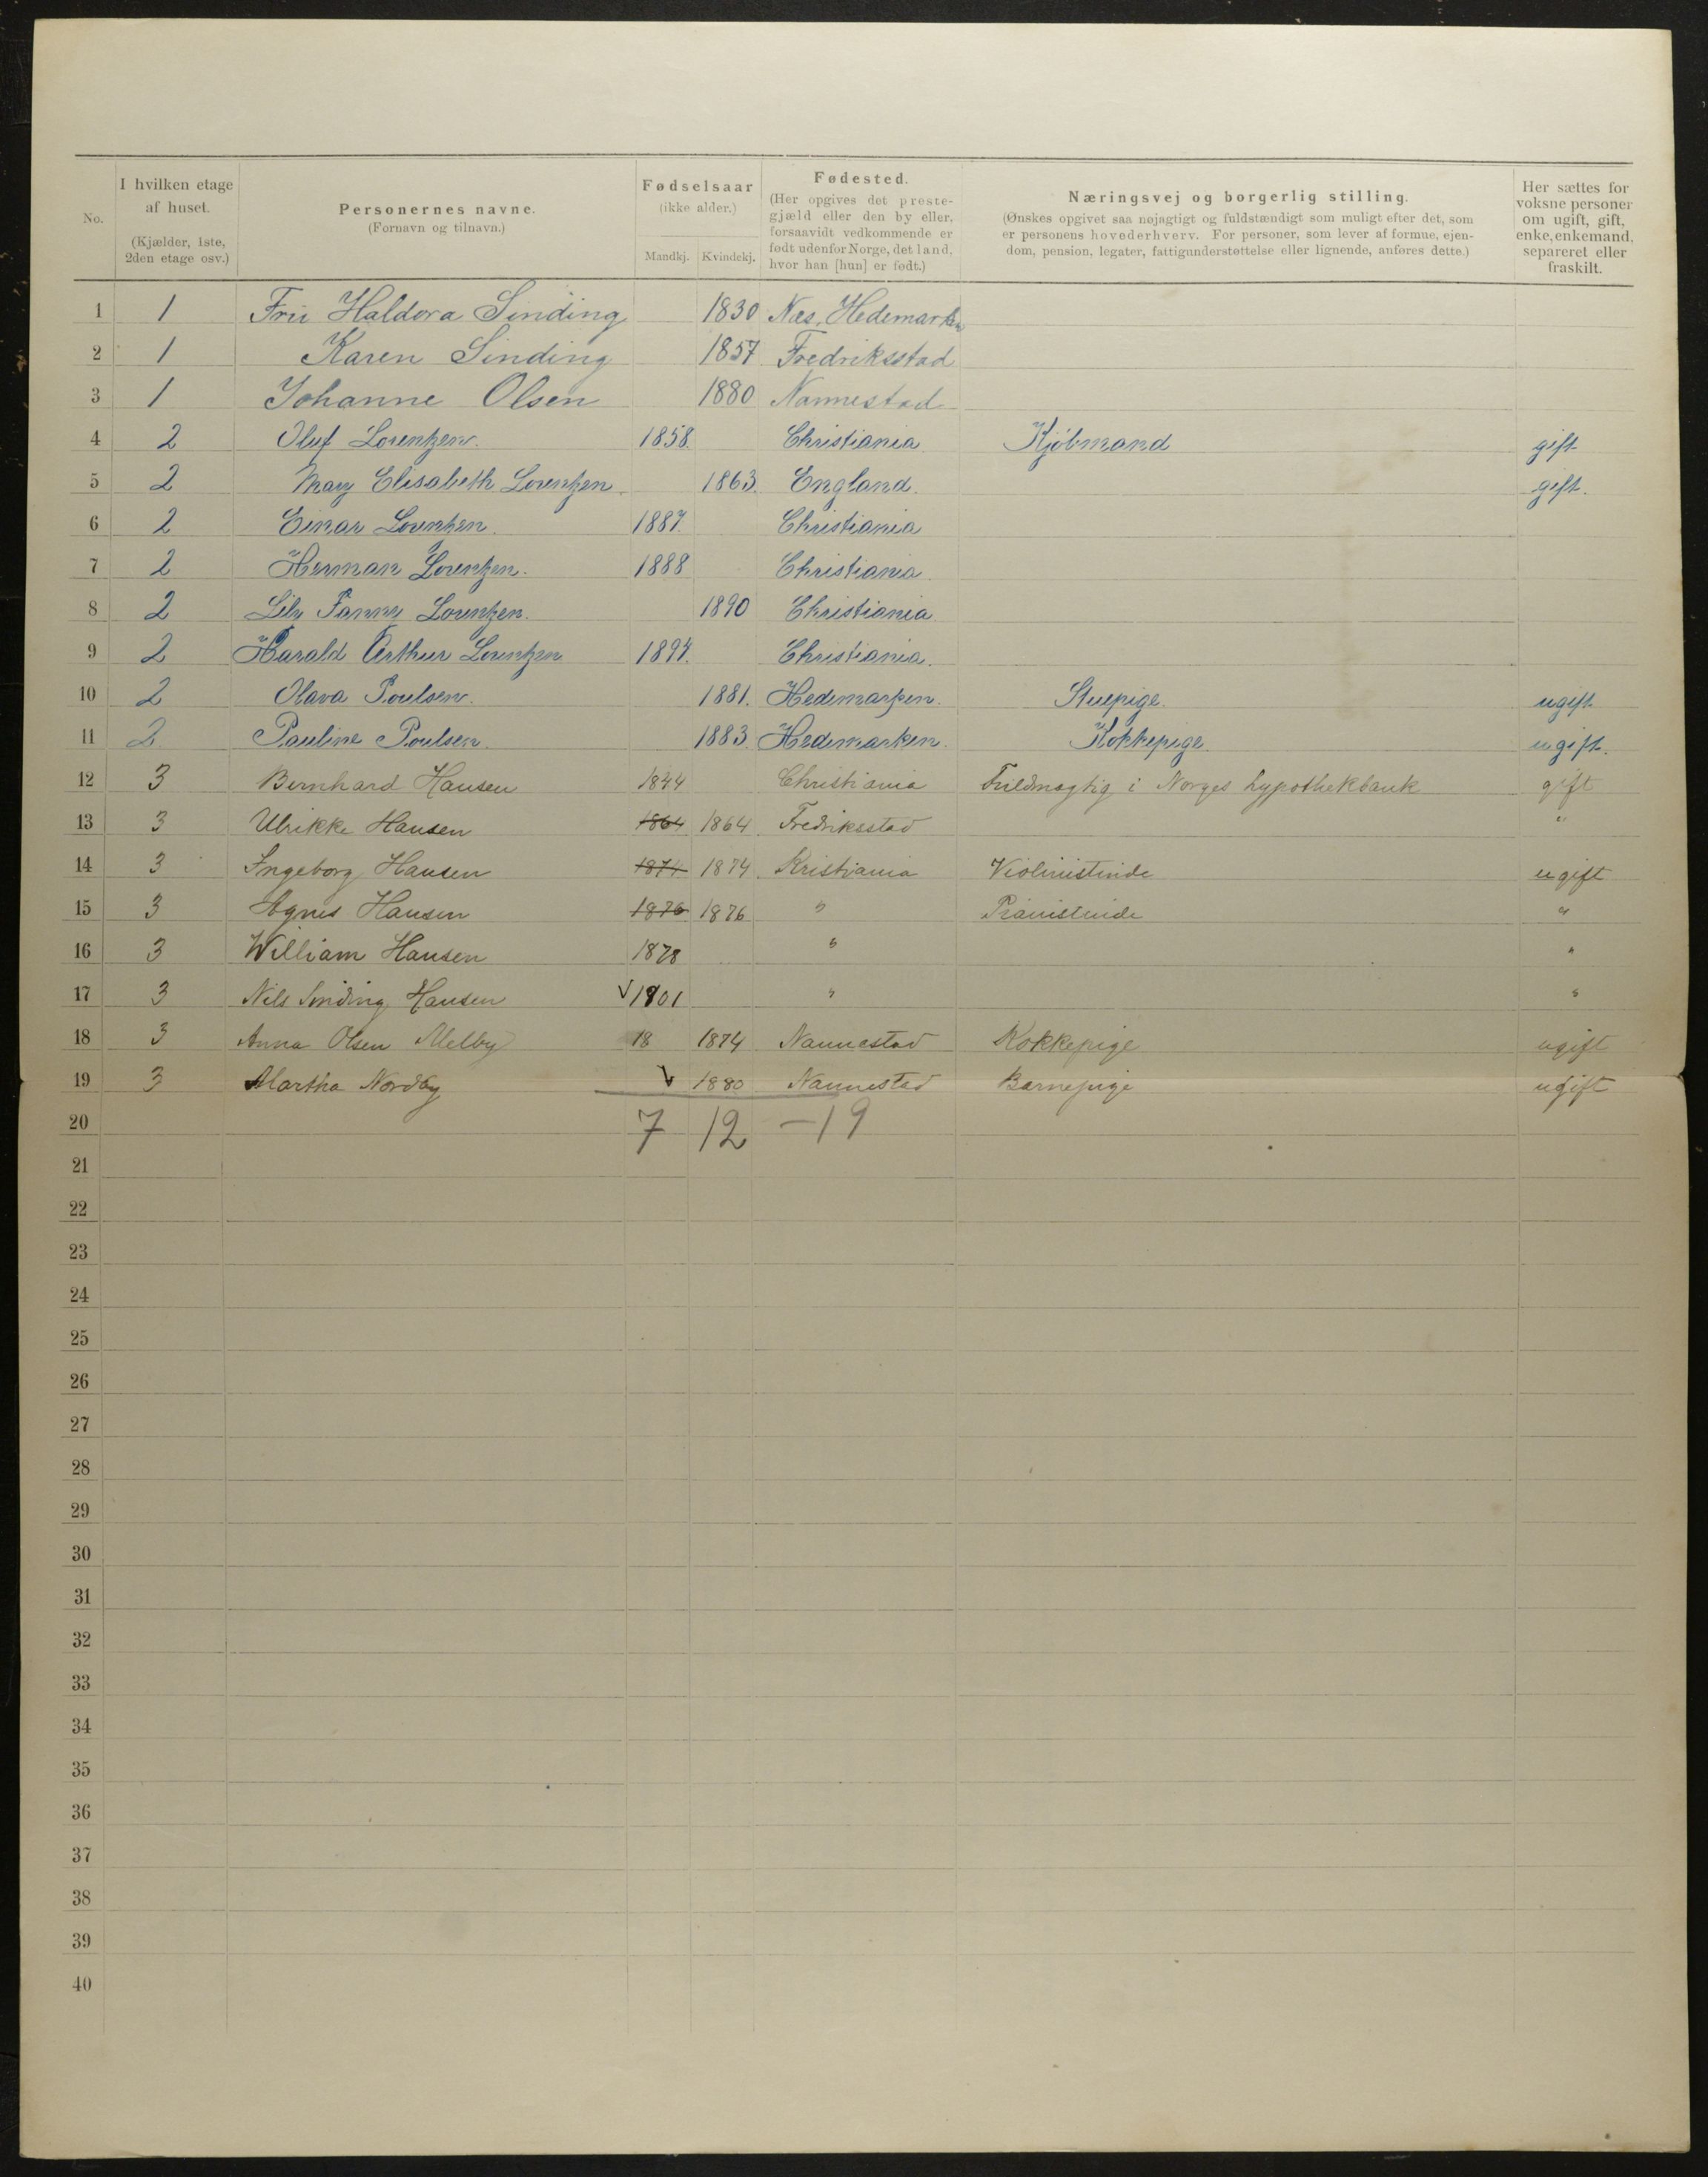 No. I hvilken etage af huset. (Kjælder, 1ste, 2den etage osv.) Personernes navne. (Fornavn og tilnavn.) Fødselsaar (ikke alder.) Mandkj. Kvindekj. Fødested. (Her opgives det prestegjæld eller den by eller, forsaavidt vedkommende er født udenfor Norge, det land, hvor han [hun] er født.) Næringsvej og borgerlig stilling. (Ønskes opgivet saa nøjagtigt og fuldstændigt som muligt efter det, som er personens hovederhverv. For personer, som lever af formue, ejendom, pension, legater, fattigunderstøttelse eller lignende, anføres dette.) Her sættes for voksne personer om ugift, gift, enke, enkemand, separeret eller fraskilt.
1 1 Fru Haldora Sinding 1830 Næs, Hedemarken
2 1 Karen Sinding 1857 Fredriksstad
3 1 Johanne Olsen 1880 Nannestad
4 2 Oluf Lorentzen. 1858. Christiania Kjøbmand gift
5 2 Mary Elisabeth Lorentzen. 1863. England. gift.
6 2 Einar Lorentzen. 1887. Christiania
7 2 Herman Lorentzen. 1888 Christiania
8 2 Lily Fanny Lorentzen. 1890 Christiania
9 2 Harald Arthur Lorentzen 1894. Christiania.
10 2 Olava Poulsen. 1881. Hedemarken. Stuepige. ugift
11 2 Pauline Poulsen. 1883. Hedemarken. Kokkepige. ugift.
12 3 Bernhard Hansen 1844 Christiania Fuldmægtig i Norges hypothekbank gift
13 3 Ulrikke Hansen 1864 1864. Fredriksstad "
14 3 Ingeborg Hansen 1874 1874. Kristiania Violinistinde ugift
15 3 Agnes Hansen 1876 1876 " Pianistinde "
16 3 William Hansen 1878 " "
17 3 Nils Sinding Hansen 1901 " "
18 3 Anna Olsen Melby 18 1874 Nannestad Kokkepige ugift
19 3 Martha Nordby 1880 Nannestad Barnepige ugift
20 7 12 – 19
21
22
23
24
25
26
27
28
29
30
31
32
33
34
35
36
37
38
39
40